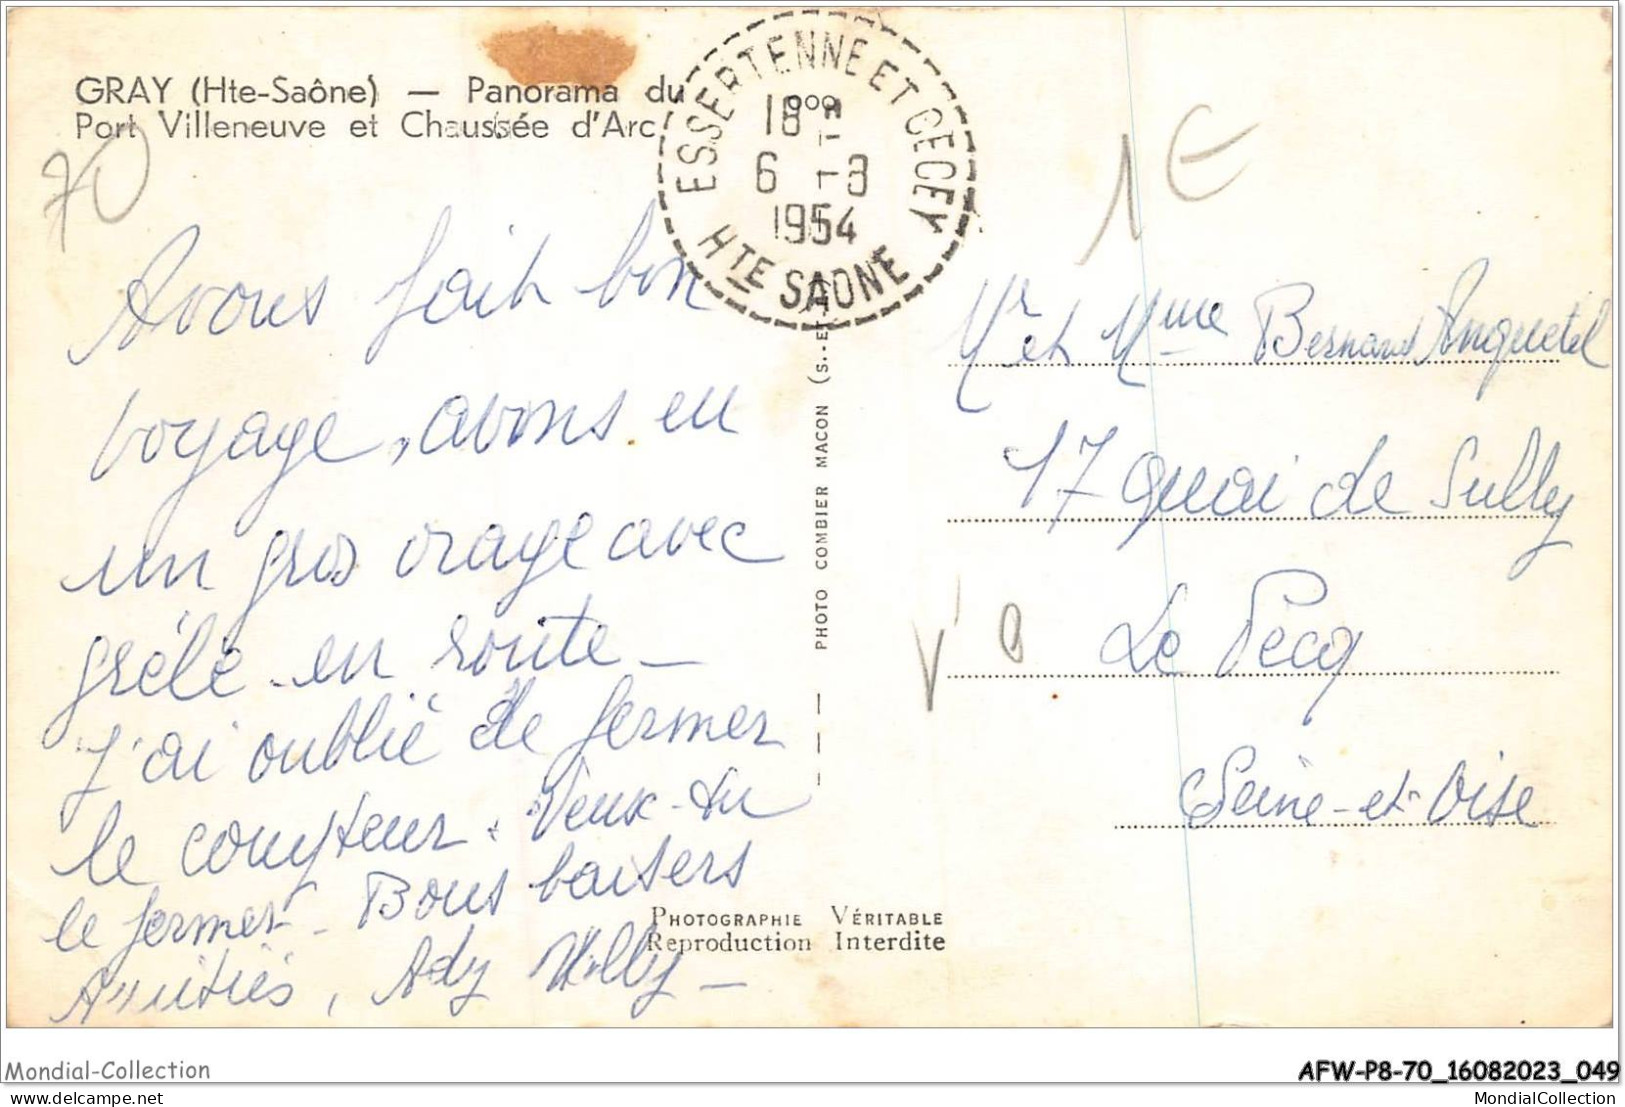 GRAY (Hte-Saône) — Panorama du
Port Villeneuve et Chaussée d'Arc
ESSERTENNE ET CECEY
18H00
6 - 3
1954
HTE SAONE
70
1€
Avons fait bon
voyage, avons eu
un gros orage avec
grêle en route —
J'ai oublié de fermer
le compteur. Veux-tu
le fermer. Bons baisers
Amitiés, Ady Willy —
PHOTO COMBIER MACON (S.-E
Mr et Mme Bernard Anquetel
17 Quai de Sully
Le Pecq
Seine-et-Oise
PHOTOGRAPHIE VÉRITABLE
Reproduction Interdite
Mondial-Collection
AFW-P8-70_16082023_049
delcampe.net
MondialCollection